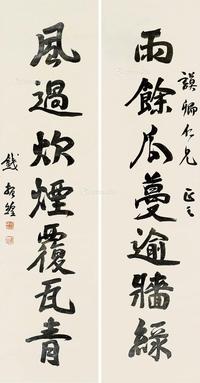 雨餘瓜蔓逾牆綠
謨卿仁兄 正之
風過炊煙覆瓦青